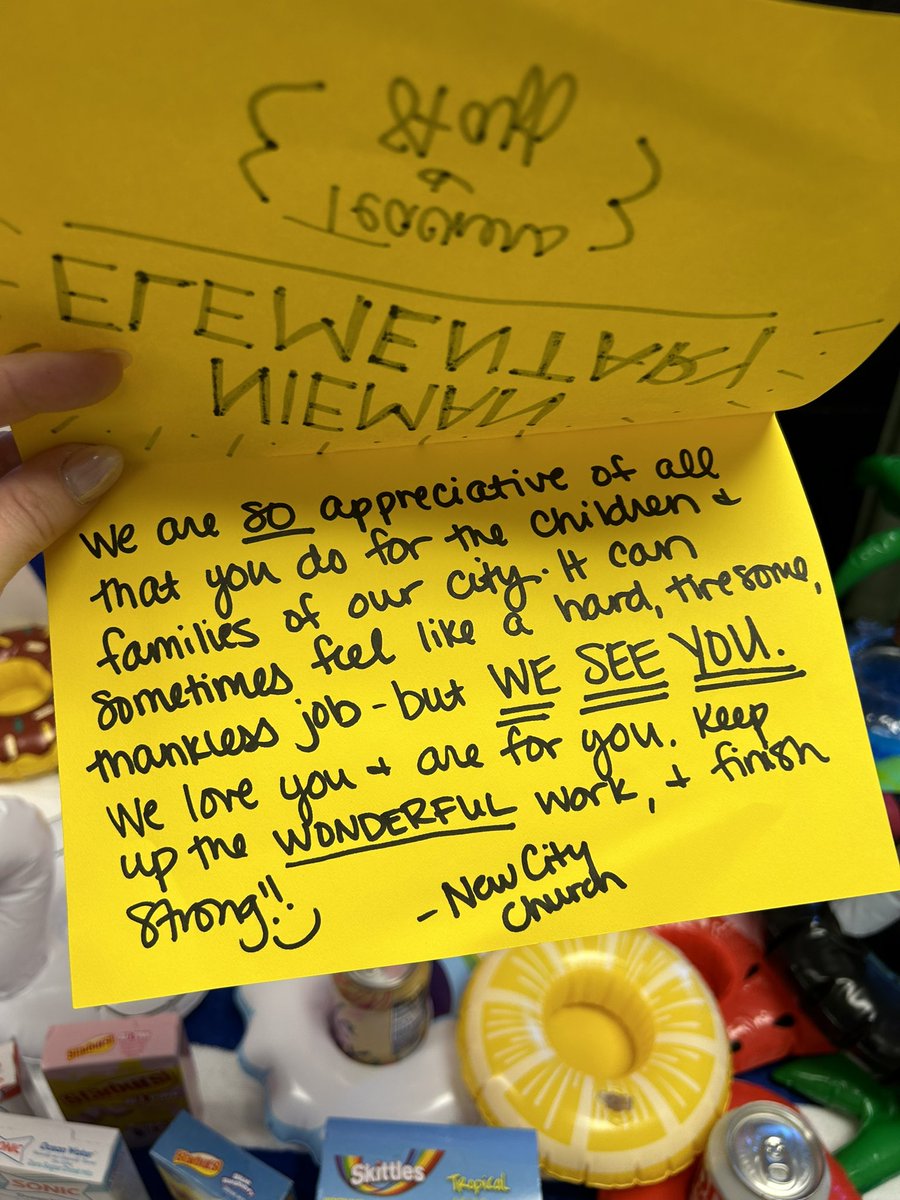 NIEMAN
ELEMENTARY
Teachers
&
Staff
We are SO appreciative of all
that you do for the children &
families of our city. It can
sometimes feel like a hard, tiresome,
thankless job - but WE SEE YOU.
We love you & are for you. Keep
up the WONDERFUL work, & finish
strong!!
- New City
Church
Starburst
Starburst
SONIC
Ocean Water
Starburst
Skittles
Tropical